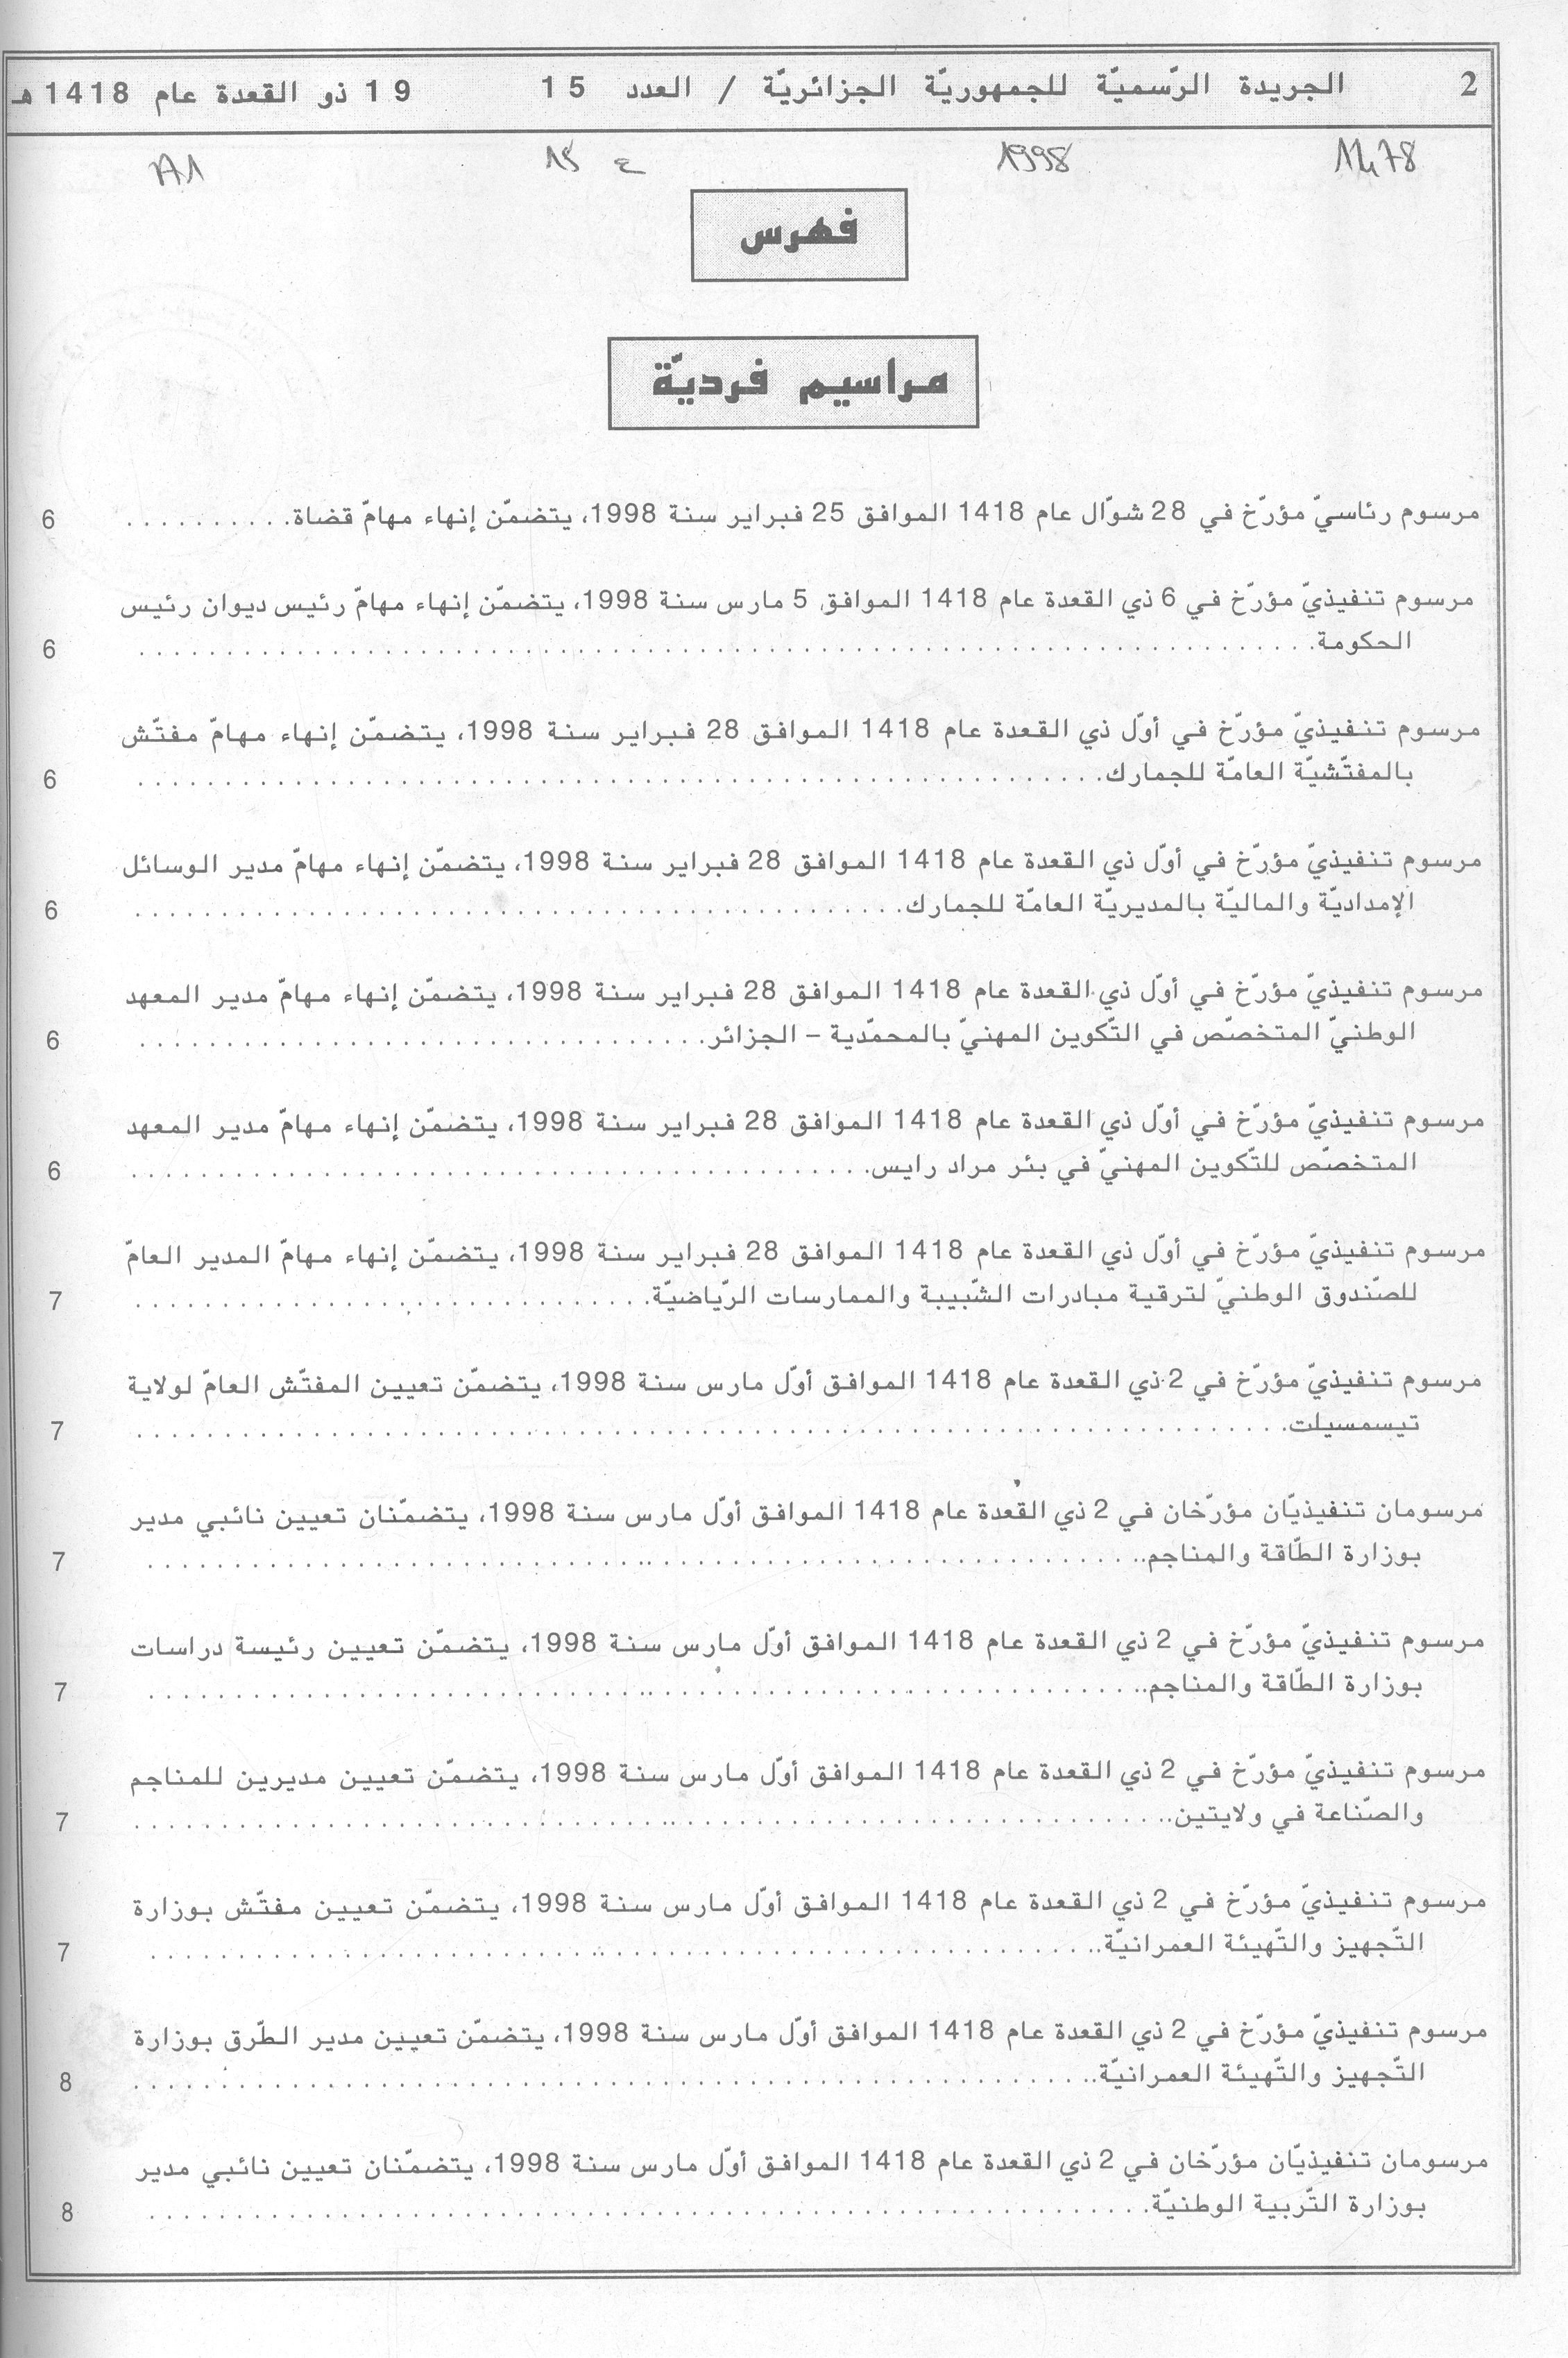 2 الجريدة الرّسميّة للجمهوريّة الجزائريّة / العدد 15 19 ذو القعدة عام 1418 هـ
1478 1998 ع 15 A1
فهرس
مراسيم فرديّة
مرسوم رئاسيّ مؤرّخ في 28 شوّال عام 1418 الموافق 25 فبراير سنة 1998، يتضمّن إنهاء مهامّ قضاة. . . . . . . . . . . 6
مرسوم تنفيذيّ مؤرّخ في 6 ذي القعدة عام 1418 الموافق 5 مارس سنة 1998، يتضمّن إنهاء مهامّ رئيس ديوان رئيس
الحكومة. . . . . . . . . . 6
مرسوم تنفيذيّ مؤرّخ في أوّل ذي القعدة عام 1418 الموافق 28 فبراير سنة 1998، يتضمّن إنهاء مهامّ مفتّش
بالمفتّشيّة العامّة للجمارك. . . . . . . . . . 6
مرسوم تنفيذيّ مؤرّخ في أوّل ذي القعدة عام 1418 الموافق 28 فبراير سنة 1998، يتضمّن إنهاء مهامّ مدير الوسائل
الإمداديّة والماليّة بالمديريّة العامّة للجمارك. . . . . . . . . . 6
مرسوم تنفيذيّ مؤرّخ في أوّل ذي القعدة عام 1418 الموافق 28 فبراير سنة 1998، يتضمّن إنهاء مهامّ مدير المعهد
الوطنيّ المتخصّص في التّكوين المهنيّ بالمحمّدية – الجزائر. . . . . . . . . . 6
مرسوم تنفيذيّ مؤرّخ في أوّل ذي القعدة عام 1418 الموافق 28 فبراير سنة 1998، يتضمّن إنهاء مهامّ مدير المعهد
المتخصّص للتّكوين المهنيّ في بئر مراد رايس. . . . . . . . . . 6
مرسوم تنفيذيّ مؤرّخ في أوّل ذي القعدة عام 1418 الموافق 28 فبراير سنة 1998، يتضمّن إنهاء مهامّ المدير العامّ
للصّندوق الوطنيّ لترقية مبادرات الشّبيبة والممارسات الرّياضيّة. . . . . . . . . . 7
مرسوم تنفيذيّ مؤرّخ في 2 ذي القعدة عام 1418 الموافق أوّل مارس سنة 1998، يتضمّن تعيين المفتّش العامّ لولاية
تيسمسيلت. . . . . . . . . . 7
مرسومان تنفيذيّان مؤرّخان في 2 ذي القعدة عام 1418 الموافق أوّل مارس سنة 1998، يتضمّنان تعيين نائبي مدير
بوزارة الطّاقة والمناجم. . . . . . . . . . 7
مرسوم تنفيذيّ مؤرّخ في 2 ذي القعدة عام 1418 الموافق أوّل مارس سنة 1998، يتضمّن تعيين رئيسة دراسات
بوزارة الطّاقة والمناجم. . . . . . . . . . 7
مرسوم تنفيذيّ مؤرّخ في 2 ذي القعدة عام 1418 الموافق أوّل مارس سنة 1998، يتضمّن تعيين مديرين للمناجم
والصّناعة في ولايتين. . . . . . . . . . 7
مرسوم تنفيذيّ مؤرّخ في 2 ذي القعدة عام 1418 الموافق أوّل مارس سنة 1998، يتضمّن تعيين مفتّش بوزارة
التّجهيز والتّهيئة العمرانيّة. . . . . . . . . . 7
مرسوم تنفيذيّ مؤرّخ في 2 ذي القعدة عام 1418 الموافق أوّل مارس سنة 1998، يتضمّن تعيين مدير الطّرق بوزارة
التّجهيز والتّهيئة العمرانيّة. . . . . . . . . . 8
مرسومان تنفيذيّان مؤرّخان في 2 ذي القعدة عام 1418 الموافق أوّل مارس سنة 1998، يتضمّنان تعيين نائبي مدير
بوزارة التّربية الوطنيّة. . . . . . . . . . 8